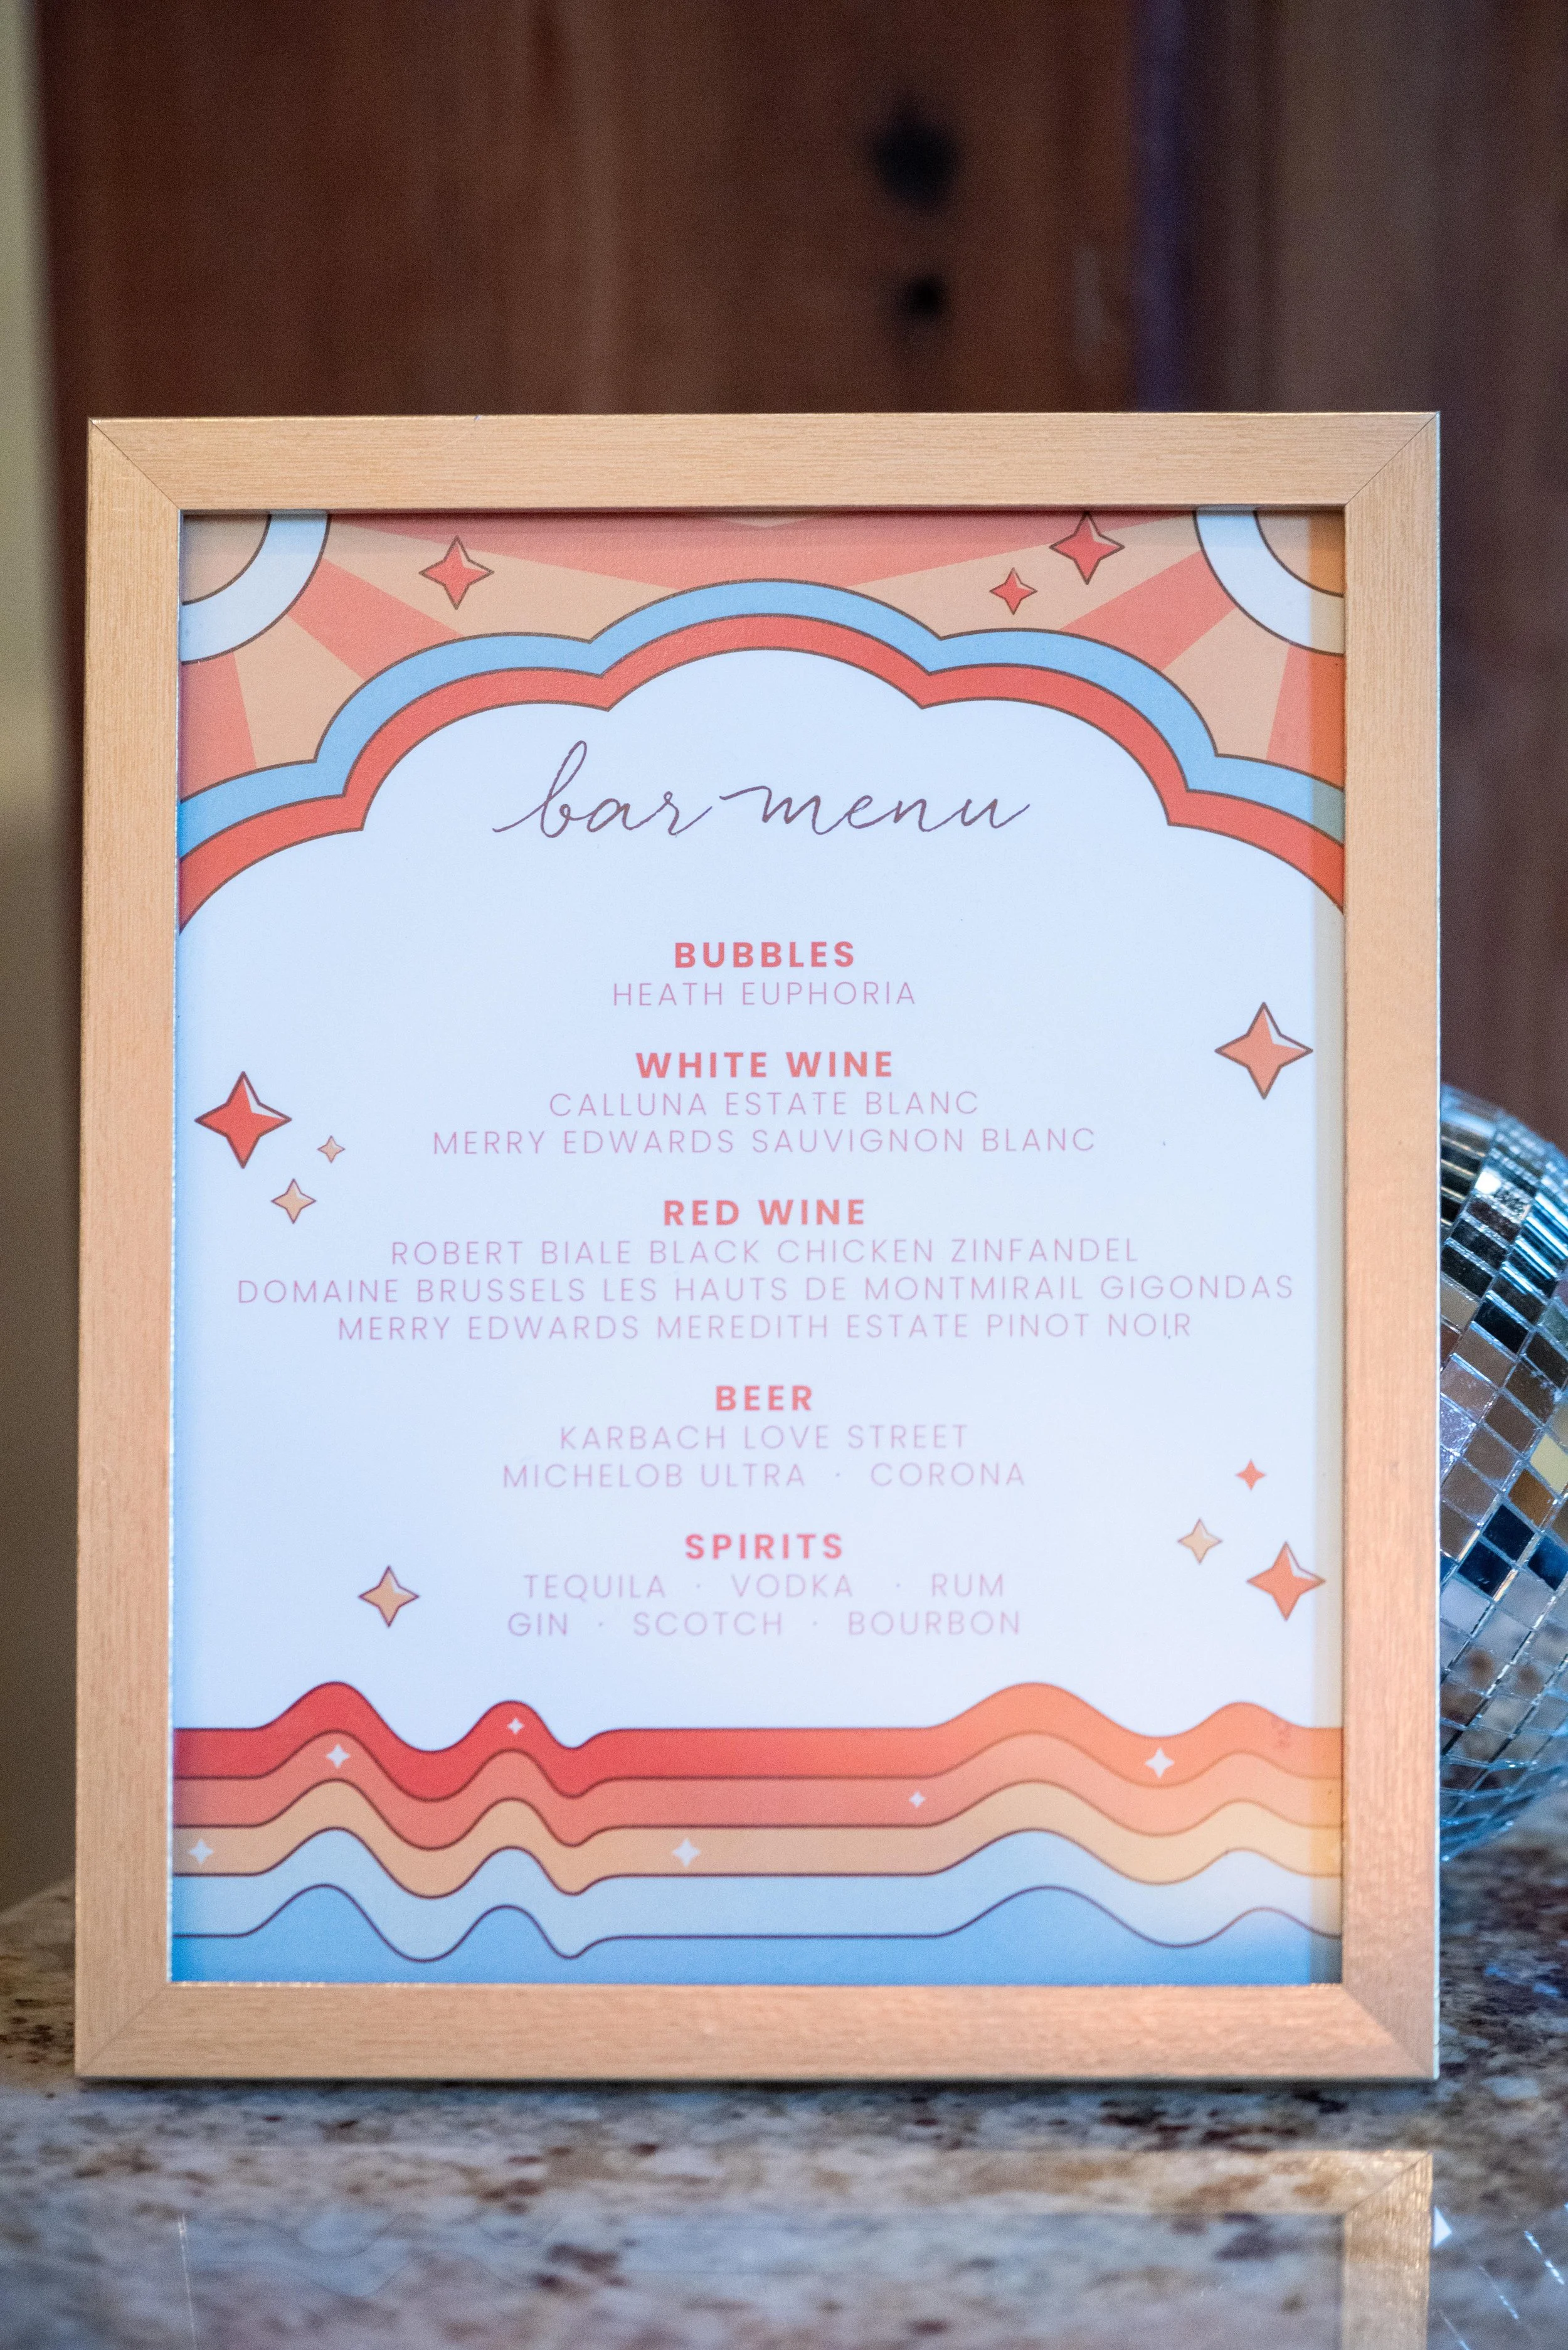 bar menu
BUBBLES
HEATH EUPHORIA
WHITE WINE
CALLUNA ESTATE BLANC
MERRY EDWARDS SAUVIGNON BLANC
RED WINE
ROBERT BIALE BLACK CHICKEN ZINFANDEL
DOMAINE BRUSSELS LES HAUTS DE MONTMIRAIL GIGONDAS
MERRY EDWARDS MEREDITH ESTATE PINOT NOIR
BEER
KARBACH LOVE STREET
MICHELOB ULTRA · CORONA
SPIRITS
TEQUILA · VODKA · RUM
GIN · SCOTCH · BOURBON